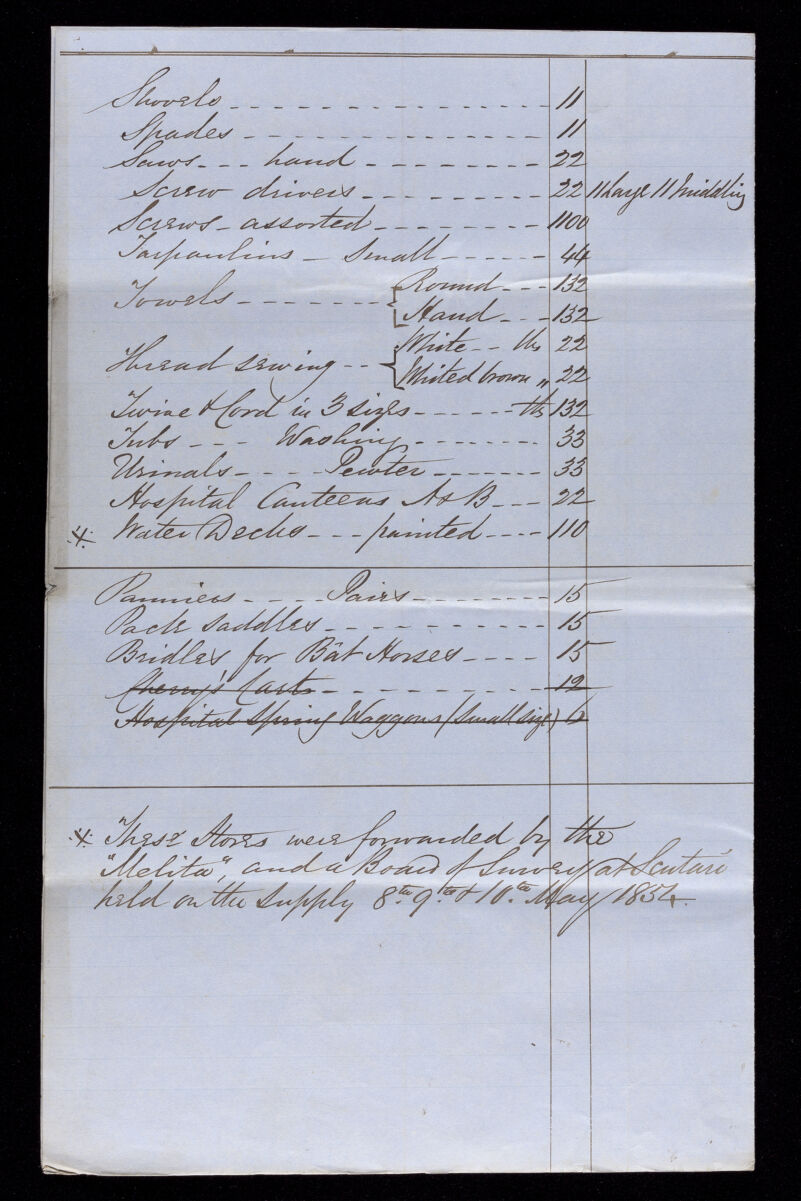 Shovels - - - - - - - - - - - - - - - - 11
Spades - - - - - - - - - - - - - - - 11
Saws - - - hand - - - - - - - - - 22
Screw drivers - - - - - - - - - 22 11 Large 11 Middling
Screws - assorted - - - - - - - - 1100
Tarpaulins - Small - - - - - - 44
Towels - - - - - - - { Round - - - 132
Hand - - - 132
Thread sewing - - { White - - lbs 22
Whited brown " 22
Twine & Cord in 3 sizes - - - - - lbs 132
Tubs - - - Washing - - - - - - - 33
Urinals - - - - Pewter - - - - - - 33
Hospital Canteens A & B - - - 22
Water Decks - - - painted - - - - 110
Panniers - - - - Pairs - - - - - - - - 15
Pack Saddles - - - - - - - - - - - 15
Bridles for Bât Horses - - - - 15
Cherry's Carts - - - - - - - - - - 12
Hospital Spring Waggons (Small size) 6
These Stores were forwarded by the
"Melita", and a Board of Survey at Scutari
held on the supply 8th. 9th. & 10th. May 1854.